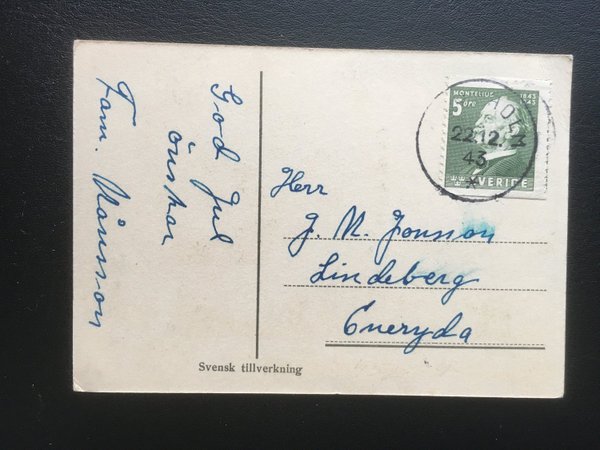 God Jul
önskar
Fam. Månsson
MONTELIUS
1843
1943
5 öre
SVERIGE
22.12.
43
Herr
J. M. Jonsson
Lindeberg
Eneryda
Svensk tillverkning